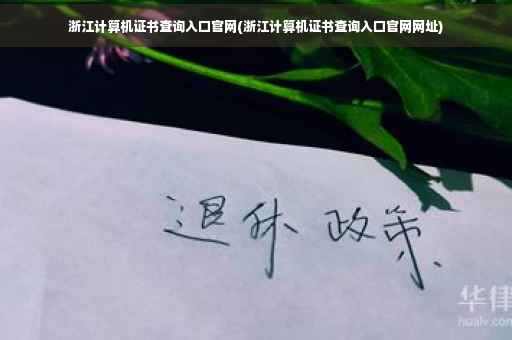 浙江计算机证书查询入口官网(浙江计算机证书查询入口官网网址)
退休 政策
华律
hualv.com